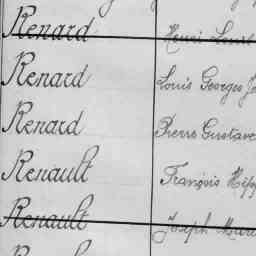 Renard Henri Louis
Renard Louis Georges
Renard Pierre Gustave
Renault François
Renault Joseph